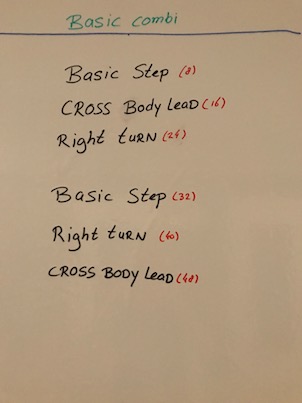 Basic combi
Basic Step (8)
CROSS Body LeaD (16)
Right tuRN (24)
Basic Step (32)
Right tuRN (40)
CROSS BODY LeaD (48)